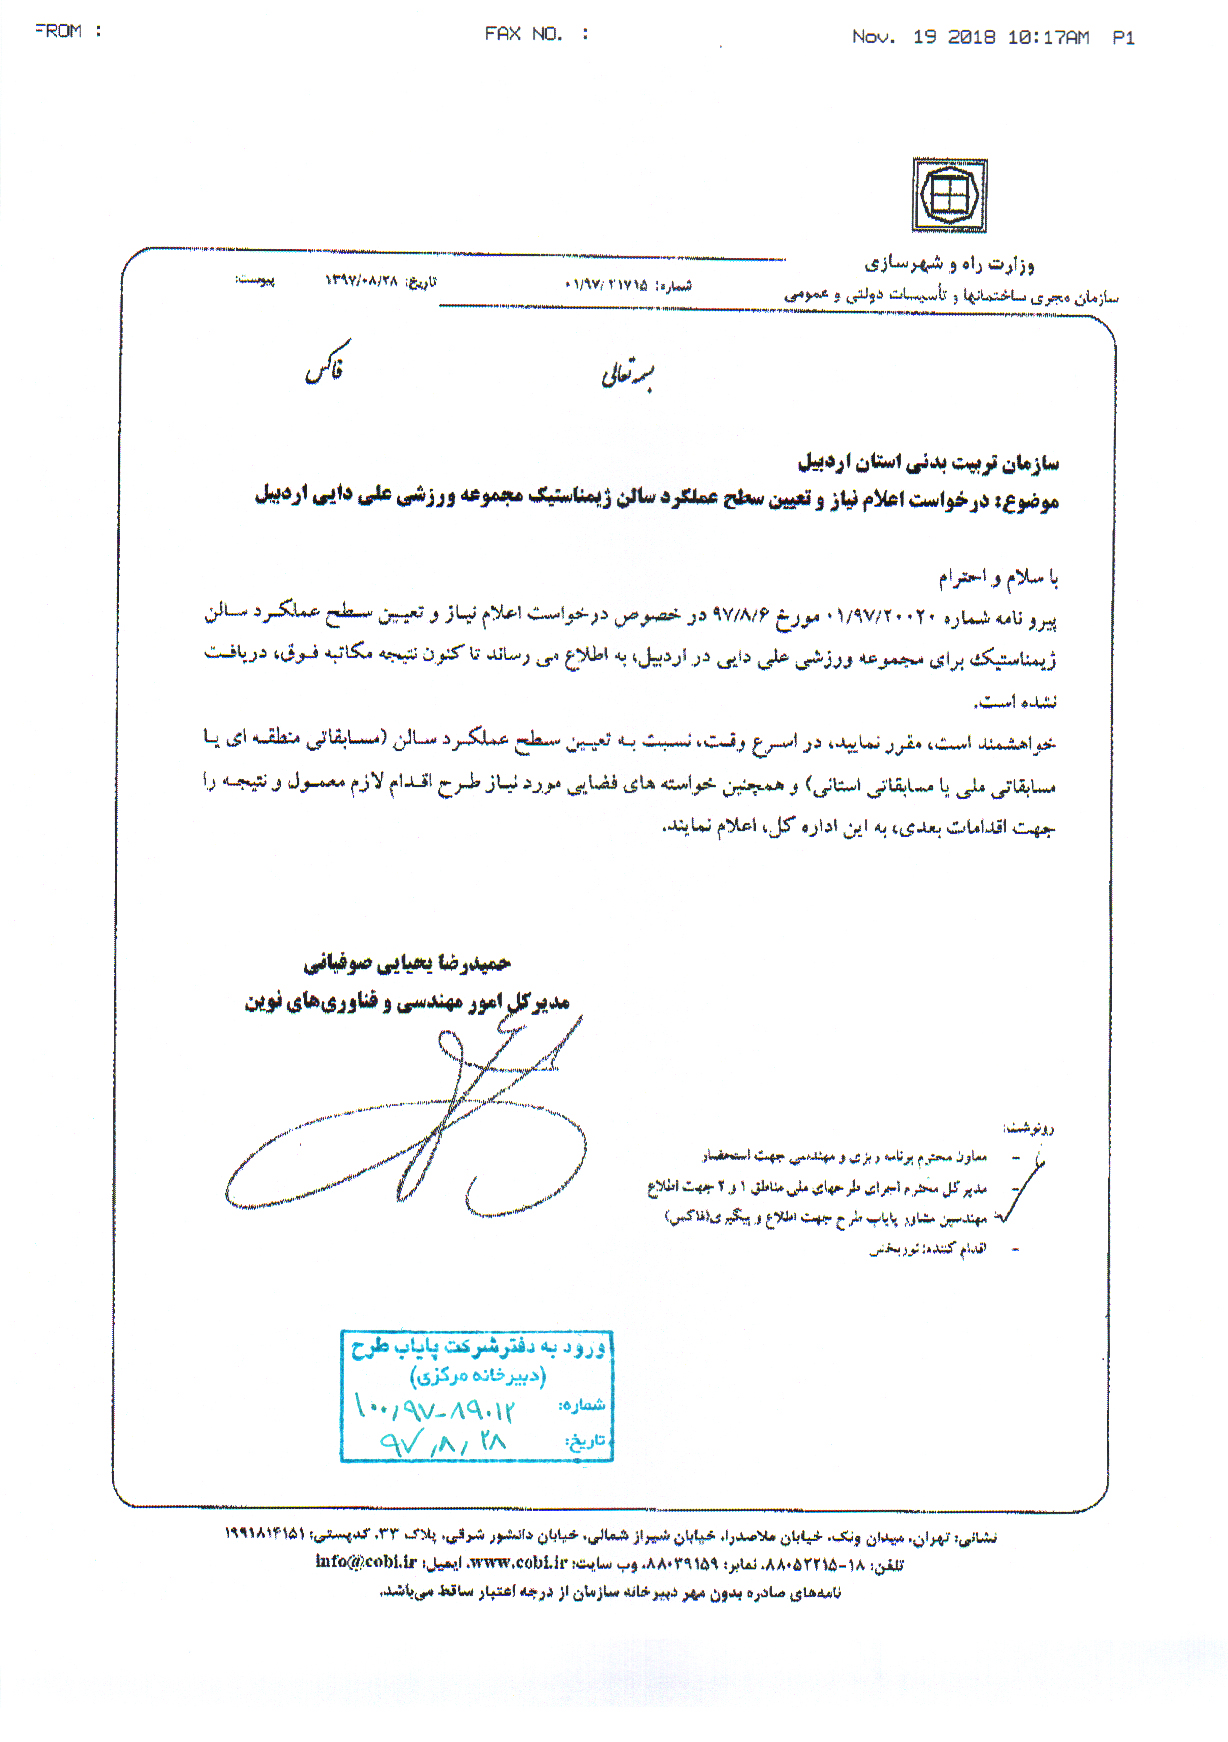 FROM :
FAX NO. :
Nov. 19 2018 10:17AM P1
وزارت راه و شهرسازی
سازمان مجری ساختمانها و تأسیسات دولتی و عمومی
شماره: ۰۱/۹۷/۲۱۷۱۵
تاریخ: ۱۳۹۷/۰۸/۲۸
پیوست:
بسمه تعالی
فاکس
سازمان تربیت بدنی استان اردبیل
موضوع: درخواست اعلام نیاز و تعیین سطح عملکرد سالن ژیمناستیک مجموعه ورزشی علی دایی اردبیل
با سلام و احترام
پیرو نامه شماره ۰۱/۹۷/۲۰۰۲۰ مورخ ۹۷/۸/۶ در خصوص درخواست اعلام نیاز و تعیین سطح عملکرد سالن
ژیمناستیک برای مجموعه ورزشی علی دایی در اردبیل، به اطلاع می رساند تا کنون نتیجه مکاتبه فوق، دریافت
نشده است.
خواهشمند است، مقرر نمایید، در اسرع وقت، نسبت به تعیین سطح عملکرد سالن (مسابقاتی منطقه ای یا
مسابقاتی ملی یا مسابقاتی استانی) و همچنین خواسته های فضایی مورد نیاز طرح اقدام لازم معمول و نتیجه را
جهت اقدامات بعدی، به این اداره کل، اعلام نمایند.
حمیدرضا یحیایی صوفیانی
مدیرکل امور مهندسی و فناوری‌های نوین
رونوشت:
- معاون محترم برنامه ریزی و مهندسی جهت استحضار
- مدیرکل محترم اجرای طرحهای ملی مناطق ۱ و ۲ جهت اطلاع
- مهندسین مشاور پایاب طرح جهت اطلاع و پیگیری(فاکس)
- اقدام کننده: نوربخش
ورود به دفتر شرکت پایاب طرح
(دبیرخانه مرکزی)
شماره: ۱۰۰/۹۷-۸۹۰۱۲
تاریخ: ۹۷/۸/۲۸
نشانی: تهران، میدان ونک، خیابان ملاصدرا، خیابان شیراز شمالی، خیابان دانشور شرقی، پلاک ۳۳، کدپستی: ۱۹۹۱۸۱۴۱۵۱
تلفن: ۱۸-۸۸۰۵۲۲۱۵، نمابر: ۸۸۰۳۹۱۵۹، وب سایت: www.cobi.ir، ایمیل: info@cobi.ir
نامه‌های صادره بدون مهر دبیرخانه سازمان از درجه اعتبار ساقط می‌باشد.